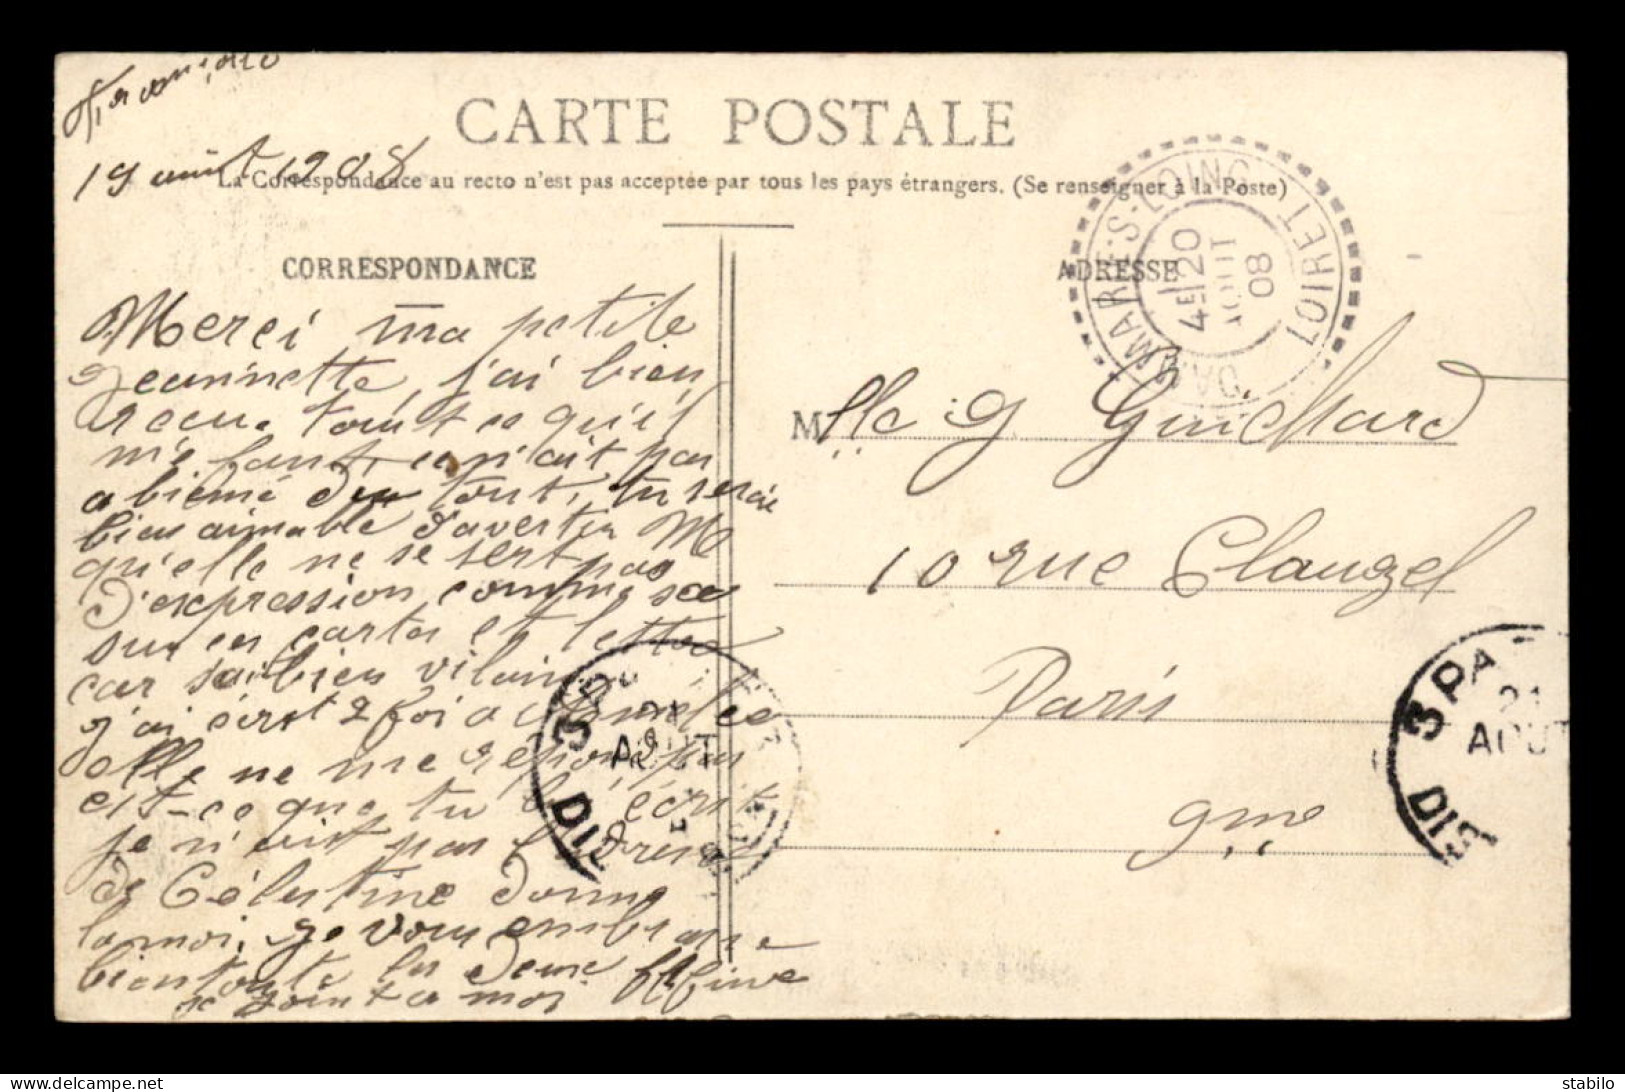 19 août 1908
CARTE POSTALE
La Correspondance au recto n'est pas acceptée par tous les pays étrangers. (Se renseigner à la Poste)
CORRESPONDANCE
Merci ma petite
Jeannette, j'ai bien
recu tout ce qu'il
me faut, ca n'ait pas
abiemé du tout, tu serai
bien aimable d'avertir M
qu'elle ne se sert pas
d'expression comme sa
sur ces cartes et lettres
car sait bien vilain
j'ai écrit 2 foi a
elle ne me répond pas
est-ce que tu lui écrit
je n'ait pas l'adresse
de Célestine donne
la moi, je vous embrasse
bientout les deux
se joint a moi
ADRESSE
Mlle G Guichard
10 rue Clauzel
Paris
9me
DAMMARIE-S-LOING
LOIRET
4E 20
AOUT
08
3 PA
21
AOUT
DIS
3 P
AOUT
DIS
stabilo